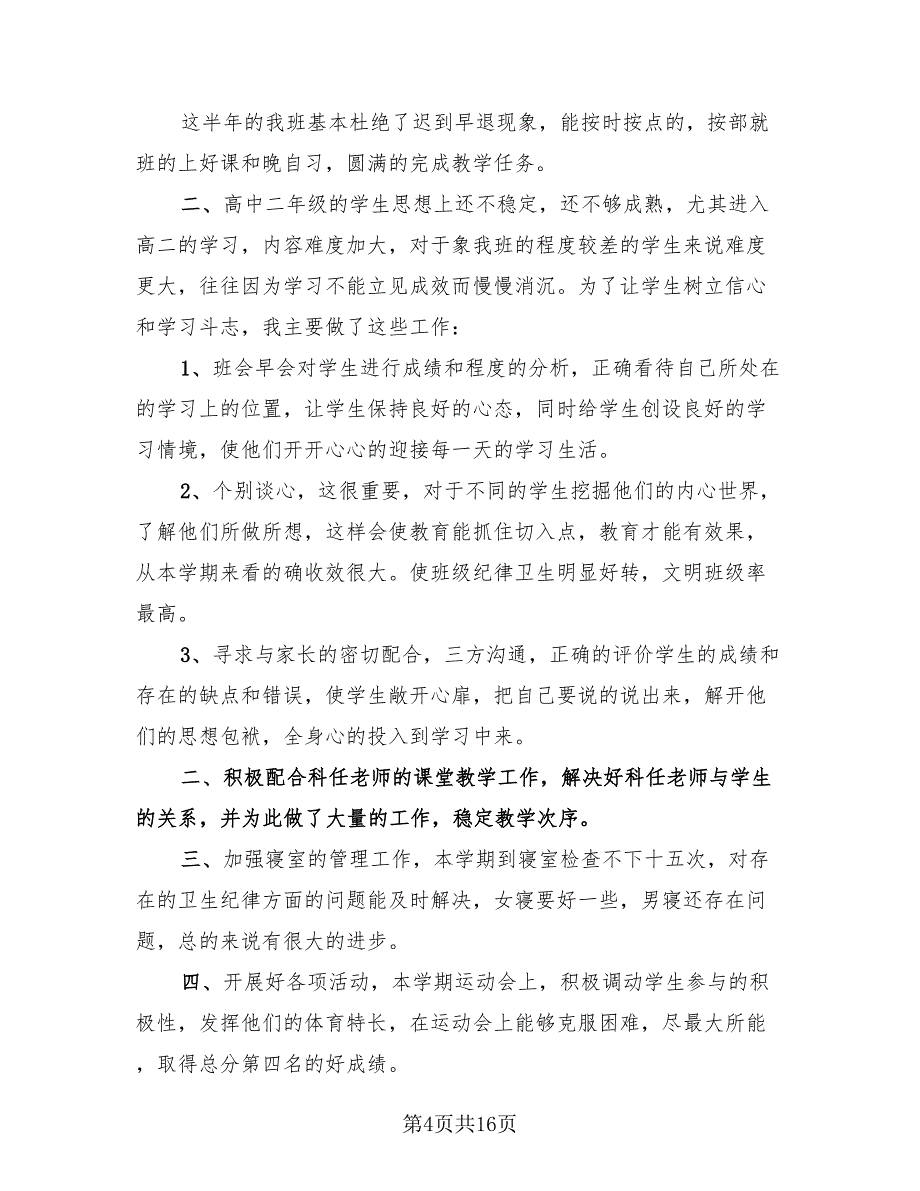 这半年的我班基本杜绝了迟到早退现象，能按时按点的，按部就
班的上好课和晚自习，圆满的完成教学任务。
二、高中二年级的学生思想上还不稳定，还不够成熟，尤其进入
高二的学习，内容难度加大，对于象我班的程度较差的学生来说难度
更大，往往因为学习不能立见成效而慢慢消沉。为了让学生树立信心
和学习斗志，我主要做了这些工作：
1、班会早会对学生进行成绩和程度的分析，正确看待自己所处在
的学习上的位置，让学生保持良好的心态，同时给学生创设良好的学
习情境，使他们开开心心的迎接每一天的学习生活。
2、个别谈心，这很重要，对于不同的学生挖掘他们的内心世界，
了解他们所做所想，这样会使教育能抓住切入点，教育才能有效果，
从本学期来看的确收效很大。使班级纪律卫生明显好转，文明班级率
最高。
3、寻求与家长的密切配合，三方沟通，正确的评价学生的成绩和
存在的缺点和错误，使学生敞开心扉，把自己要说的说出来，解开他
们的思想包袱，全身心的投入到学习中来。
二、积极配合科任老师的课堂教学工作，解决好科任老师与学生
的关系，并为此做了大量的工作，稳定教学次序。
三、加强寝室的管理工作，本学期到寝室检查不下十五次，对存
在的卫生纪律方面的问题能及时解决，女寝要好一些，男寝还存在问
题，总的来说有很大的进步。
四、开展好各项活动，本学期运动会上，积极调动学生参与的积
极性，发挥他们的体育特长，在运动会上能够克服困难，尽最大所能
，取得总分第四名的好成绩。
第4页共16页